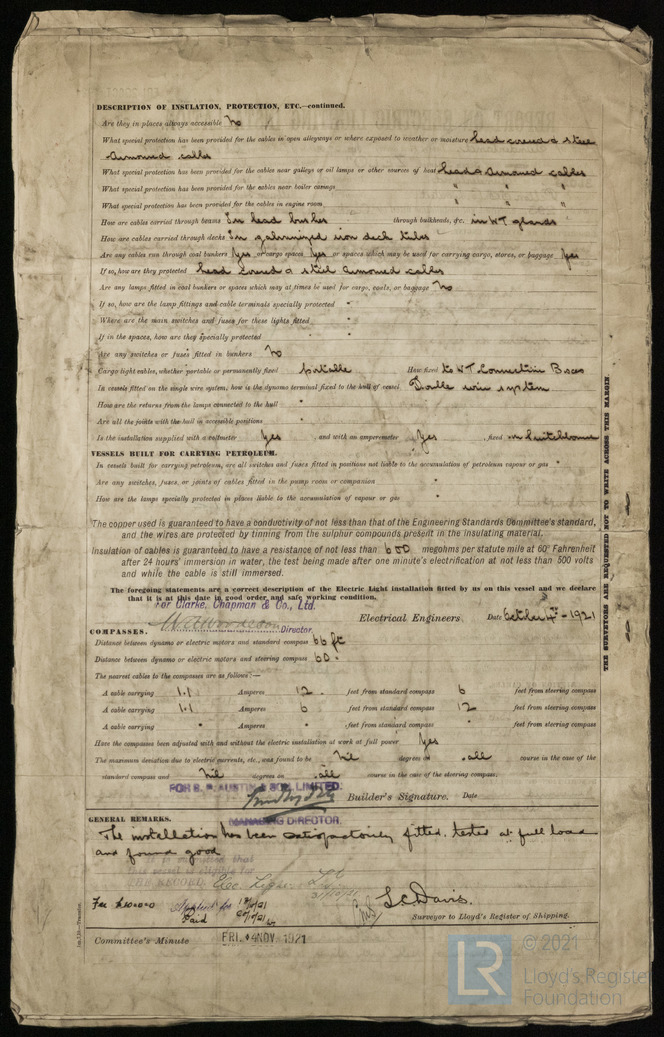 DESCRIPTION OF INSULATION, PROTECTION, ETC.—continued.
Are they in places always accessible No
What special protection has been provided for the cables in open alleyways or where exposed to weather or moisture Lead covered & steel
Armoured cables
What special protection has been provided for the cables near galleys or oil lamps or other sources of heat Lead & Armoured cables
What special protection has been provided for the cables near boiler casings " " "
What special protection has been provided for the cables in engine room " " "
How are cables carried through beams In lead bushes through bulkheads, &c. in W.T. glands
How are cables carried through decks In galvanized iron deck tubes
Are any cables run through coal bunkers Yes or cargo spaces Yes or spaces which may be used for carrying cargo, stores, or baggage Yes
If so, how are they protected Lead covered & steel armoured cables
Are any lamps fitted in coal bunkers or spaces which may at times be used for cargo, coals, or baggage No
If so, how are the lamp fittings and cable terminals specially protected
Where are the main switches and fuses for these lights fitted
If in the spaces, how are they specially protected
Are any switches or fuses fitted in bunkers No
Cargo light cables, whether portable or permanently fixed Portable How fixed to W.T. Connection Boxes
In vessels fitted on the single wire system, how is the dynamo terminal fixed to the hull of vessel Double wire system
How are the returns from the lamps connected to the hull
Are all the joints with the hull in accessible positions
Is the installation supplied with a voltmeter Yes , and with an amperemeter Yes , fixed on Switchboard
VESSELS BUILT FOR CARRYING PETROLEUM.
In vessels built for carrying petroleum, are all switches and fuses fitted in positions not liable to the accumulation of petroleum vapour or gas
Are any switches, fuses, or joints of cables fitted in the pump room or companion
How are the lamps specially protected in places liable to the accumulation of vapour or gas
The copper used is guaranteed to have a conductivity of not less than that of the Engineering Standards Committee's standard,
and the wires are protected by tinning from the sulphur compounds present in the insulating material.
Insulation of cables is guaranteed to have a resistance of not less than 600 megohms per statute mile at 60° Fahrenheit
after 24 hours' immersion in water, the test being made after one minute's electrification at not less than 500 volts
and while the cable is still immersed.
The foregoing statements are a correct description of the Electric Light installation fitted by us on this vessel and we declare
that it is at this date in good order and safe working condition.
For Clarke, Chapman & Co., Ltd.
Director. Electrical Engineers Date October 4th - 1921
COMPASSES.
Distance between dynamo or electric motors and standard compass 66 ft
Distance between dynamo or electric motors and steering compass 60 "
The nearest cables to the compasses are as follows:—
A cable carrying 1.1 Amperes 12 feet from standard compass 6 feet from steering compass
A cable carrying 1.1 Amperes 6 feet from standard compass 12 feet from steering compass
A cable carrying " Amperes " feet from standard compass " feet from steering compass
Have the compasses been adjusted with and without the electric installation at work at full power Yes
The maximum deviation due to electric currents, etc., was found to be Nil degrees on all course in the case of the
standard compass and Nil degrees on all course in the case of the steering compass.
FOR S. P. AUSTIN & SON, LIMITED.
Builder's Signature. Date
MANAGING DIRECTOR.
GENERAL REMARKS.
The installation has been satisfactorily fitted, tested at full load
and found good
THE RECORD. Elec. Light.
Fee £10:0:0 Applied for
Paid
L.C. Davis.
Surveyor to Lloyd's Register of Shipping.
Committee's Minute FRI. 4 NOV. 1921
THE SURVEYORS ARE REQUESTED NOT TO WRITE ACROSS THIS MARGIN.
LR
© 2021
Lloyd's Register
Foundation